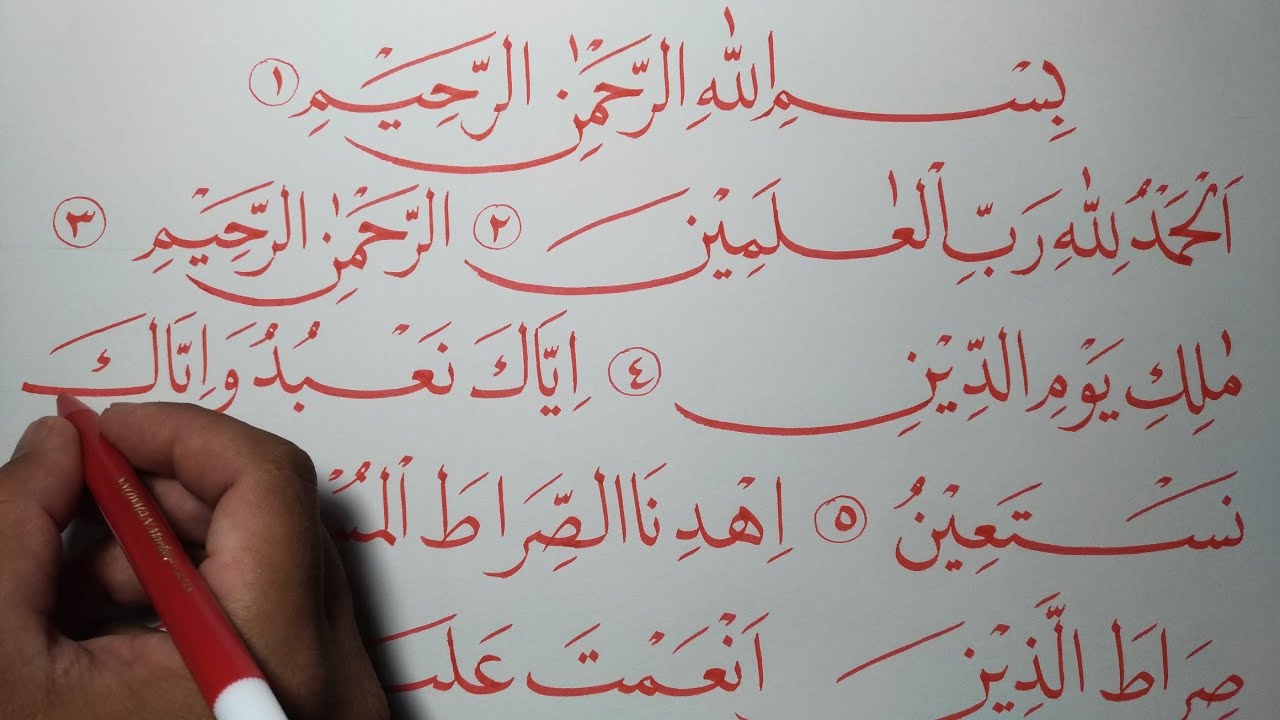 بِسْمِ اللّٰهِ الرَّحْمٰنِ الرَّحِيْمِ ١
اَلْحَمْدُ لِلّٰهِ رَبِّ الْعٰلَمِيْنَ ٢ الرَّحْمٰنِ الرَّحِيْمِ ٣
مٰلِكِ يَوْمِ الدِّيْنِ ٤ اِيَّاكَ نَعْبُدُ وَاِيَّاكَ
نَسْتَعِيْنُ ٥ اِهْدِنَا الصِّرَاطَ
صِرَاطَ الَّذِيْنَ اَنْعَمْتَ
SNOWMAN Marker